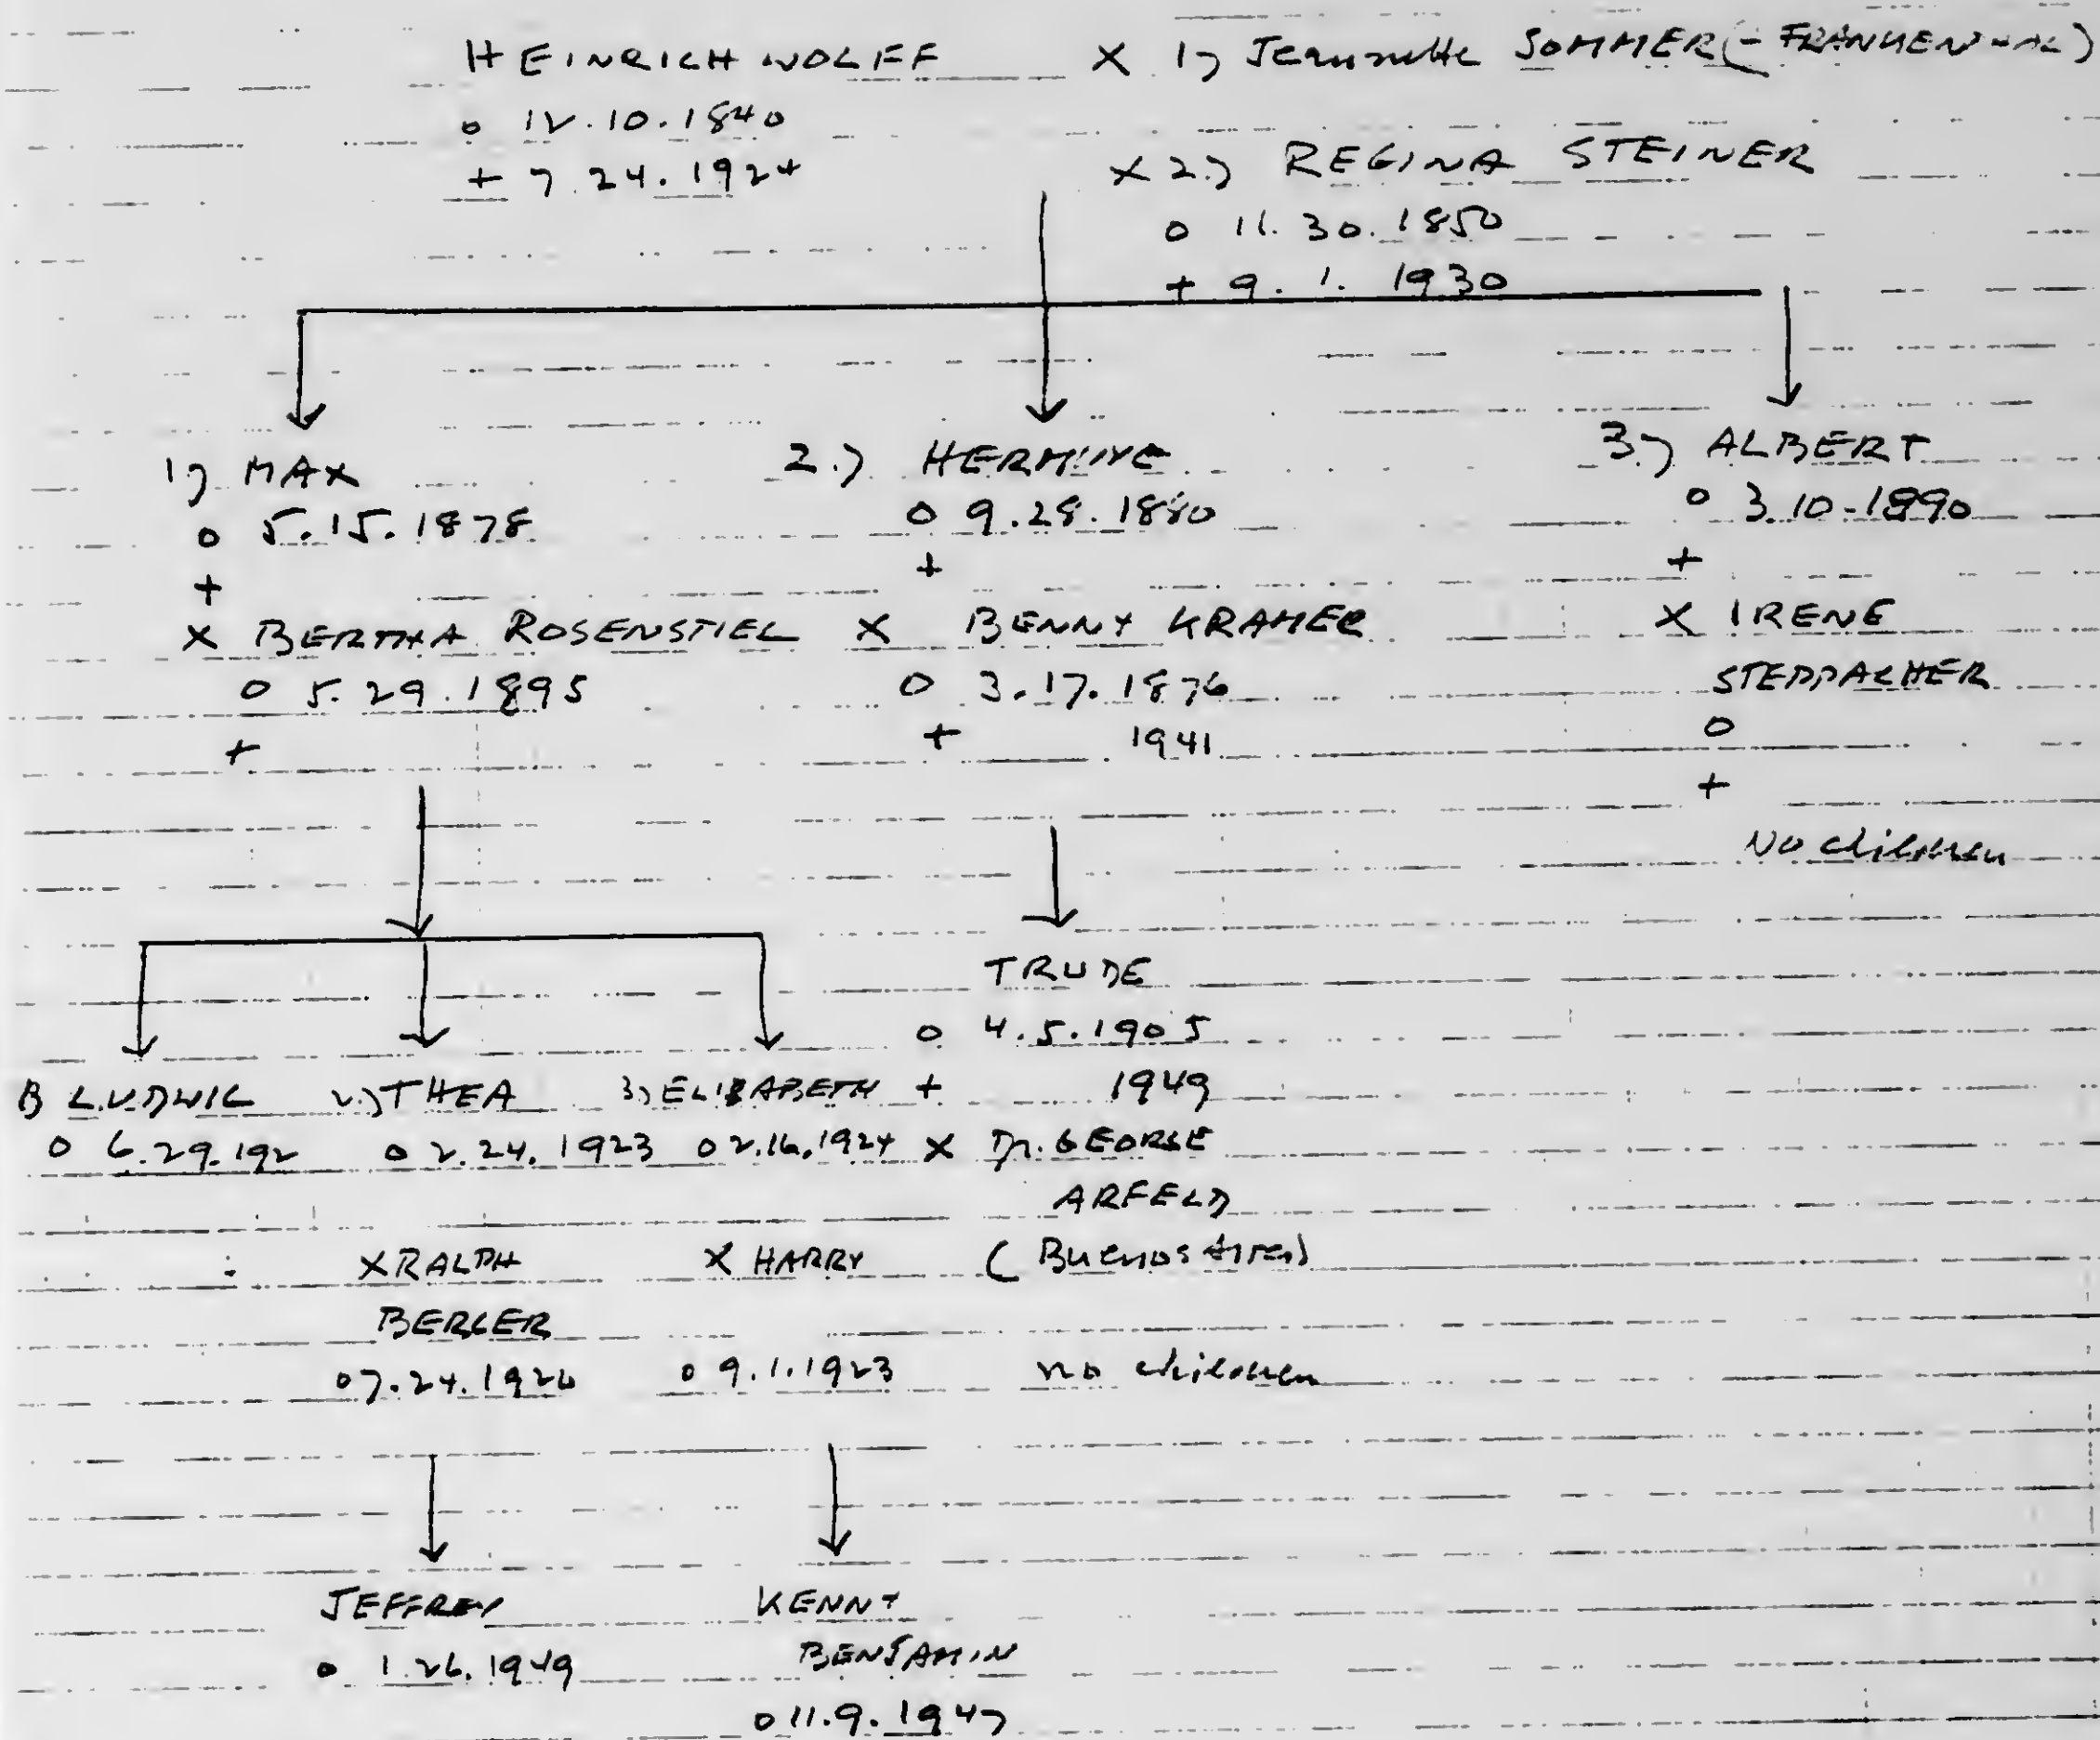 HEINRICH WOLFF X 1) Jeannette SOMMER (- FRANKENTHAL)
o 12.10.1840
+ 7.24.1924
X 2.) REGINA STEINER
o 11.30.1850
+ 9.1.1930
1) MAX
o 5.15.1878
+
X BERTHA ROSENSTIEL
o 5.29.1895
+
2.) HERMINE
o 9.28.1880
+
X BENNY KRAMER
o 3.17.1876
+ 1941
3.) ALBERT
o 3.10.1890
+
X IRENE
STEPPACHER
o
+
No children
1) LUDWIG
o 6.29.192
2.) THEA
o 2.24.1923
X RALPH
BERGER
o 7.24.1920
3) ELISABETH
o 2.16.1924
X HARRY
o 9.1.1923
TRUDE
o 4.5.1905
+ 1949
X Dr. GEORGE
ARFELD
(Buenos Aires)
no children
JEFFREY
o 1.26.1949
KENNY
BENJAMIN
o 11.9.1947